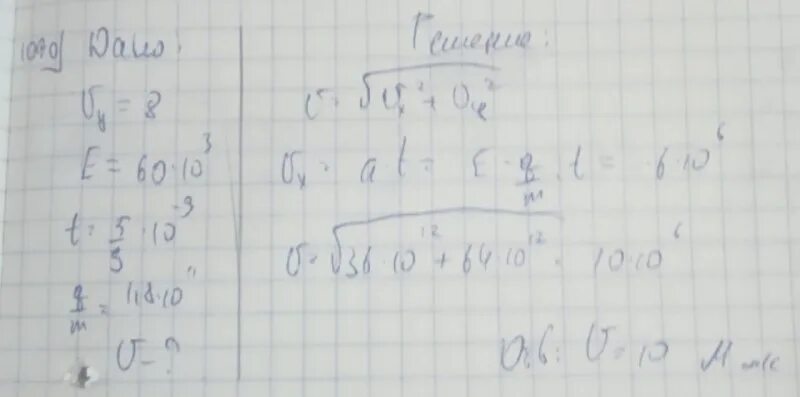 1070) Дано:
υ_y = 8
E = 60·10³
t = 5/9 · 10⁻⁹
q/m = 1,8·10¹¹
υ - ?
Решение:
υ = √(υ_x² + υ_y²)
υ_x = a·t = E · q/m · t = 6·10⁶
υ = √(36·10¹² + 64·10¹²) = 10·10⁶
Отв: υ = 10 Мм/с